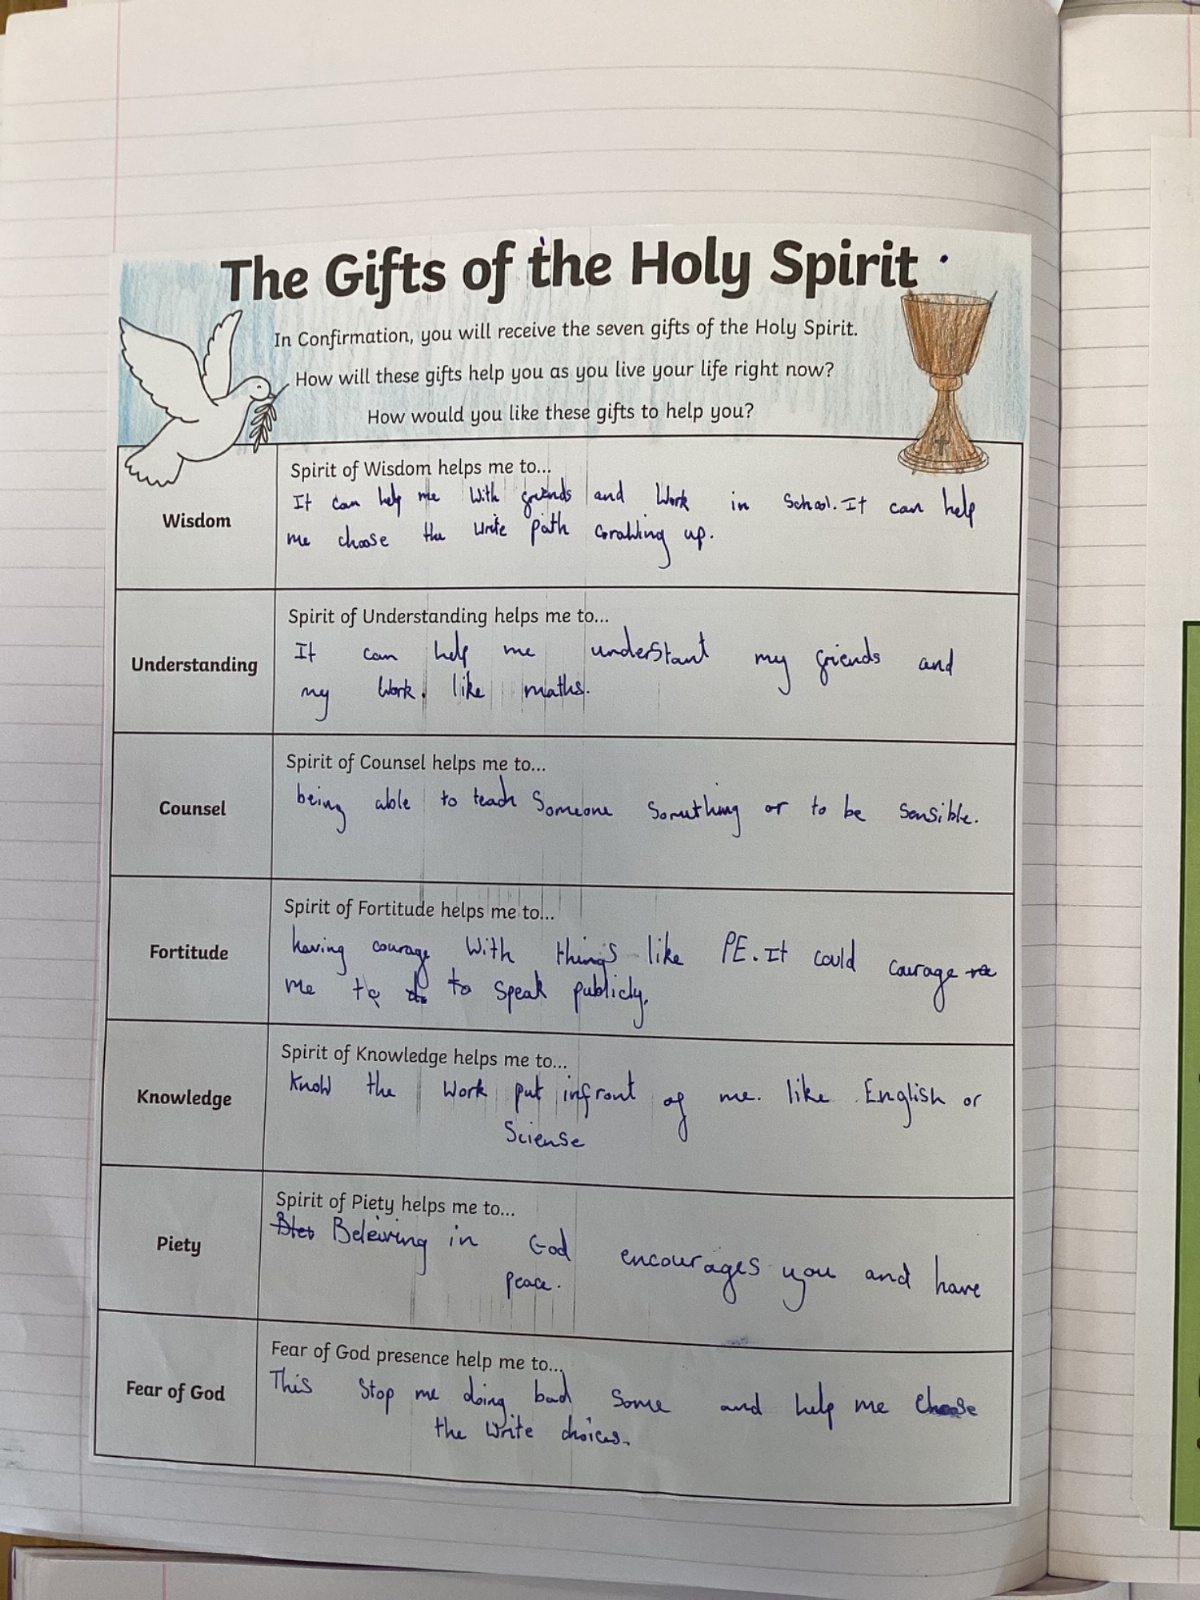 The Gifts of the Holy Spirit
In Confirmation, you will receive the seven gifts of the Holy Spirit.
How will these gifts help you as you live your life right now?
How would you like these gifts to help you?
Wisdom
Spirit of Wisdom helps me to...
It can help me with friends and work in School. It can help
me choose the write path up.
Understanding
Spirit of Understanding helps me to...
It can help me understant my friends and
my work. like maths.
Counsel
Spirit of Counsel helps me to...
being able to teach Someone Something or to be sensible.
Fortitude
Spirit of Fortitude helps me to...
having courage with things like PE. It could courage
me to speak publicly.
Knowledge
Spirit of Knowledge helps me to...
Know the work put infront of me. like English or
Sciense
Piety
Spirit of Piety helps me to...
Beleiving in God encourages you and have
peace.
Fear of God
Fear of God presence help me to...
This stop me doing bad some and help me choose
the write choices.